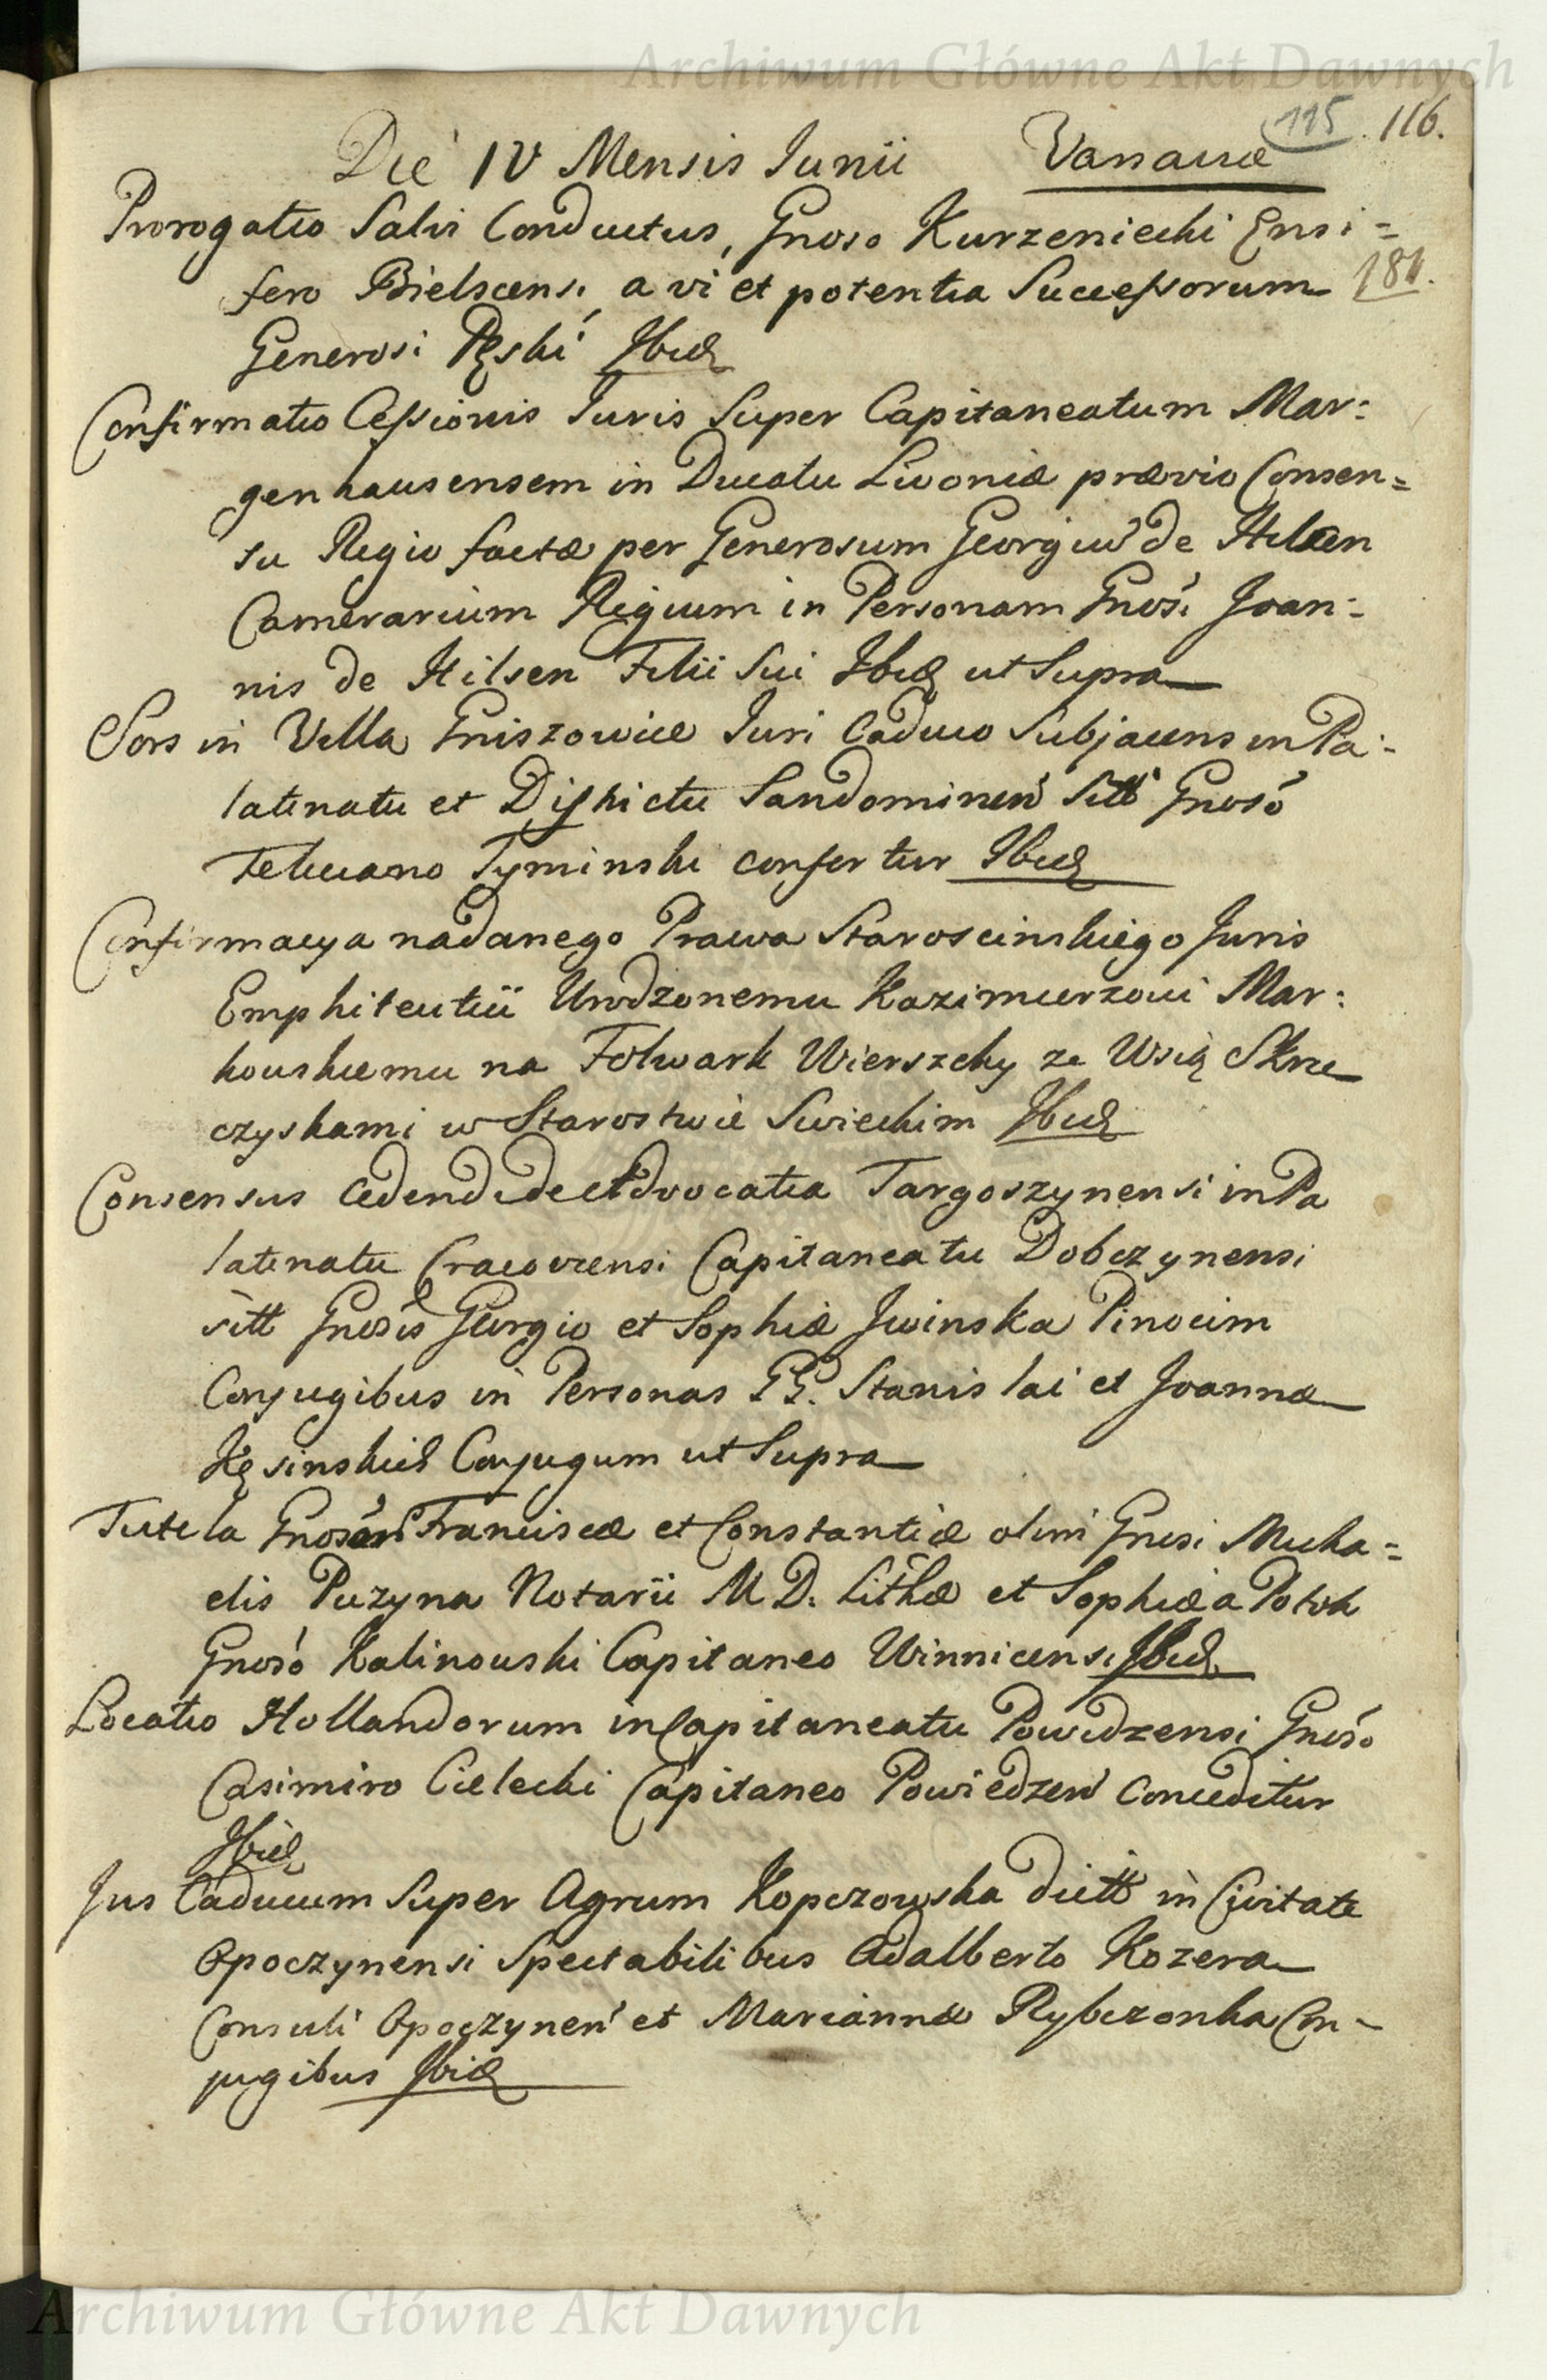 Archiwum Główne Akt Dawnych
115 116.
Die IV Mensis Junii Varsaviæ
Prorogatio Salvi Conductus, Gnoso Kurzeniecki Ensi=
fero Bielscensi a vi et potentia Successorum 181.
Generosi Pęski Ibid
Confirmatio Cessionis Juris Super Capitaneatum Mar=
genhausensem in Ducatu Livoniæ prævio Consen=
su Regio factæ per Generosum Georgiu de Hilsen
Camerarium Regium in Personam Gnosi Joan=
nis de Hilsen Filii Sui Ibid ut Supra
Sors in Villa Gniszowice Juri Caduco Subjacens in Pa=
latinatu et Districtu Sandominen Sitt Gnoso
Feliciano Tyminski confertur Ibid
Confirmacya nadanego Prawa Staroscinskiego Juris
Emphiteutii Urodzonemu Kazimierzowi Mar=
kouskiemu na Folwark Wierszchy ze Wsią Skrze
czyskami w Starostwie Swieckim Ibid
Consensus cedendi de Advocatia Targoszynensi in Pa
latinatu Cracoviensi Capitaneatu Dobczynensi
sitt Gnosis Georgio et Sophiæ Iwinska Pinocim
Conjugibus in Personas GG. Stanislai et Joannæ
Kęsinskich Conjugum ut Supra
Tutela Gnosar Franciscæ et Constantiæ olim Gnosi Micha=
elis Puzyna Notarii M D. Litħæ et Sophiæ a Potok
Gnoso Kalinouski Capitaneo Winnicensi Ibid
Locatio Hollandorum in Capitaneatu Powidzensi Gnoso
Casimiro Cielecki Capitaneo Powiedzen Conceditur
Ibid
Jus Caducum Super Agrum Kopczowska dictt in Civitate
Opoczynensi Spectabilibus Adalberto Kozera
Consuli Opoczynen et Mariannæ Rybczonka Con=
jugibus Ibid
Archiwum Główne Akt Dawnych